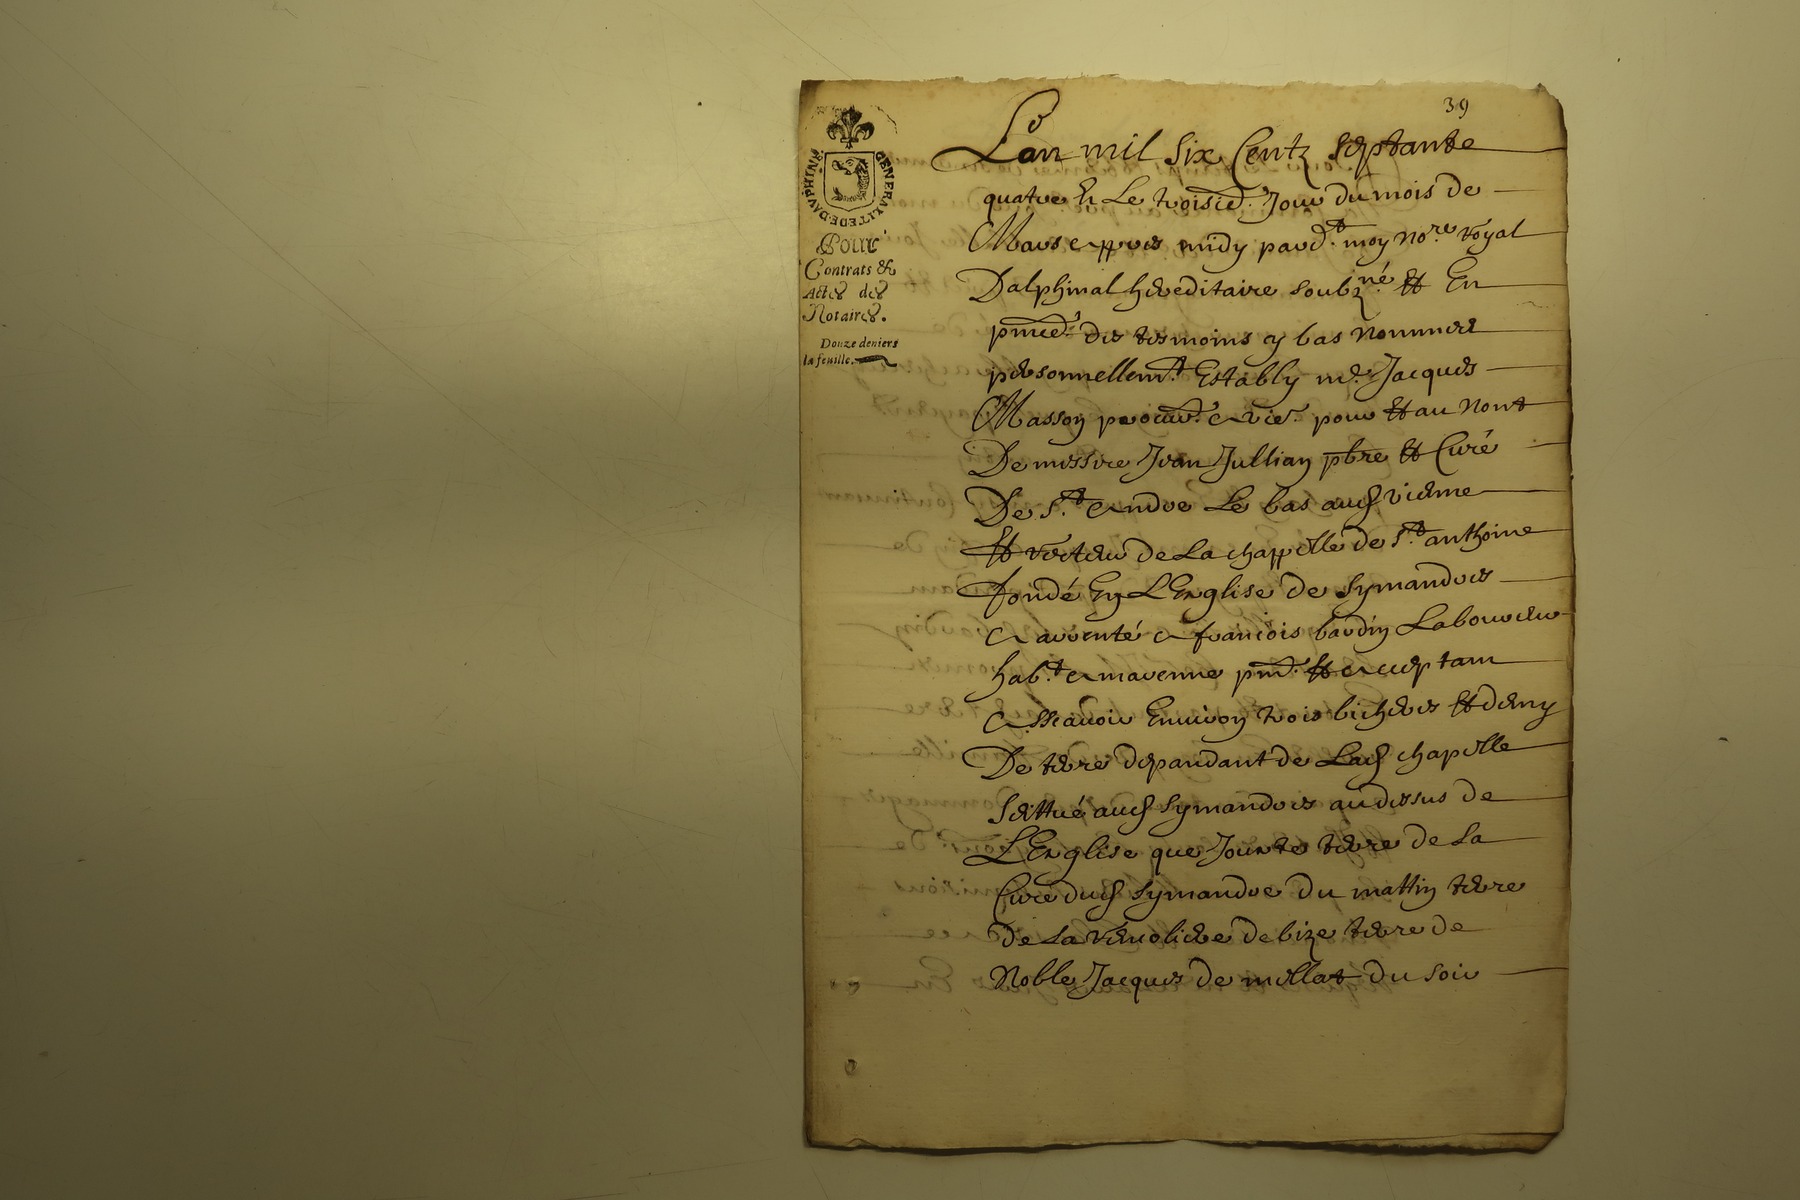 39
GENERALITE DE DAVPHINE
Pour
Contrats &
Actes des
Notaires.
Douze deniers
la feuille.
Lan mil six Centz septante
quatre & Le troisie.e Jour du mois de
Mars appres midy pard.t moy no.re royal
Dalphinal hereditaire soubz.né et En
pnce.e des tesmoins cy bas nommes
personnellem.t Estably m.e Jacques
Masson procur.r a vie.e pour et au nom
De missire Jean Jullian pbre et Curé
De s.t Andre Le bas aud vienne
et recteur de La chappelle de s.t anthoine
fondé En L Englise de symandres
a arrenté a francois bardin Laboureur
hab.t a marenne pnt. et acceptam
assavoir Environ trois bicheres et demy
De terre depandant de Lad chapelle
scittué aud symandres audessus de
L Englise que Jouxte terre de La
Cure dud symandre du mattin terre
de La verroliere de bize terre de
Noble Jacques de mellat du soir